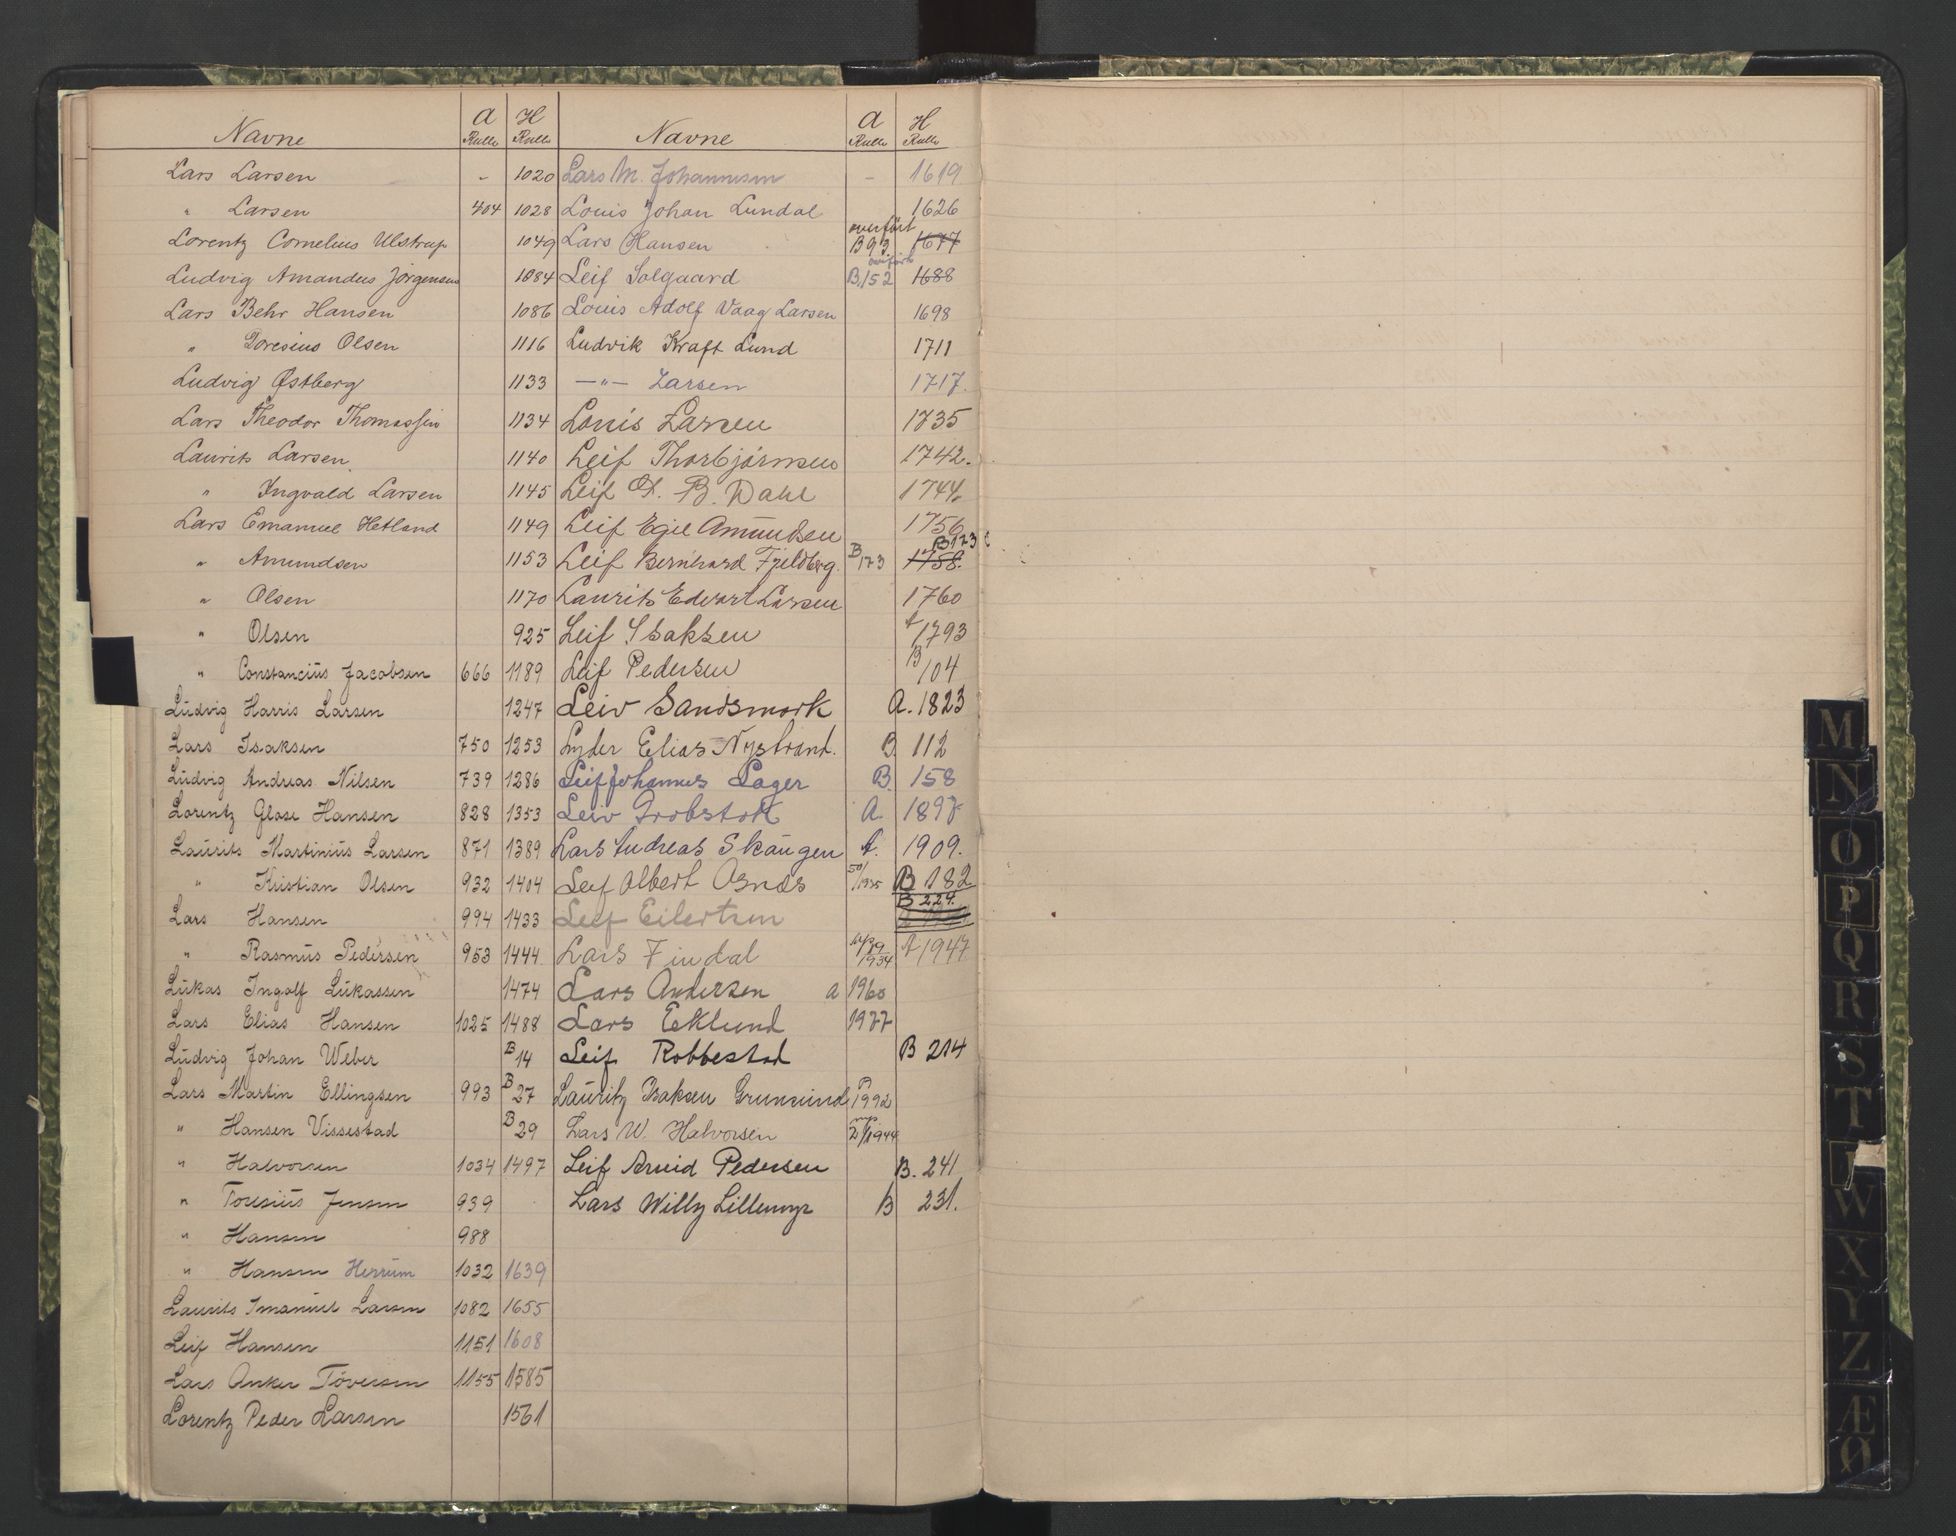 Navne A Rulle H Rulle
Lars Larsen - 1020
" Larsen 404 1028
Lorentz Cornelius Ulstrup 1049
Ludvig Amandus Jørgensen 1084
Lars Behr Hansen 1086
" Toresius Olsen 1116
Ludvig Østberg 1133
Lars Theodor Thomassen 1134
Laurits Larsen 1140
" Ingvald Larsen 1145
Lars Emanuel Hetland 1149
" Amundsen 1153
" Olsen 1170
" Olsen 925
" Constancius Jacobsen 666 1189
Ludvig Harris Larsen 1247
Lars Isaksen 750 1253
Ludvig Andreas Nilsen 739 1286
Lorentz Glose Hansen 828 1353
Laurits Martinius Larsen 871 1389
" Kristian Olsen 932 1404
Lars Hansen 994 1433
" Rasmus Pedersen 953 1444
Lukas Ingolf Lukassen 1474
Lars Elias Hansen 1025 1488
Ludvig Johan Weber B 14
Lars Martin Ellingsen 993 B 27
" Hansen Vissestad B 29
" Halvorsen 1034 1497
" Toresius Jensen 939
" Hansen 988
" Hansen Herrum 1032 1639
Laurits Imanuel Larsen 1082 1655
Leif Hansen 1151 1608
Lars Anker Tøversen 1155 1585
Lorentz Peder Larsen 1561
Navne A Rulle H Rulle
Lars M. Johannesen - 1619
Louis Johan Lundal 1626
Lars Hansen overført B 93 1677
Leif Solgaard overført B.152 1688
Louis Adolf Vaag Larsen 1698
Ludvik Kraft Lund 1711
—"— Larsen 1717.
Louis Larsen 1735
Leif Thorbjørnsen 1742.
Leif O. B. Dahl 1744
Leif Egil Amundsen 1756
Leif Bernhard Fjeldberg. B 173 B 173 1758.
Laurits Edvart Larsen 1760
Leif Isaksen A 1793
Leif Pedersen B 104
Leiv Sandsmork A. 1823
Lyder Elias Nystrand. B 112
Leif Johannes Lager B. 158
Leiv Grobstok A. 1897
Lars Andreas Skaugen A. 1909.
Leif Albert Asnes 1935 B 182
Leif Eilertsen B 224.
Lars Findal 1934 A 1947
Lars Andersen A 1960
Lars Eklund 1977
Leif Robbestad B 214
Lauritz Isaksen Grunsund A 1992
Lars W. Halvorsen 1944
Leif Arvid Pedersen B. 241
Lars Willy Lillemyr B 231.
M
N
O
P
Q
R
S
T
W
X
Y
Z
Æ
Ø